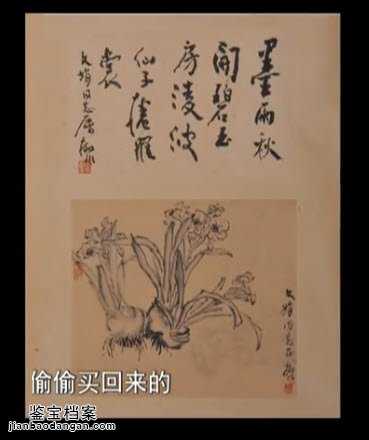 墨雨秋
開碧玉
房凌波
仙子羅
裳
文娟同志屬
文娟同志正
偷偷买回来的
鉴宝档案
jianbaodangan.com